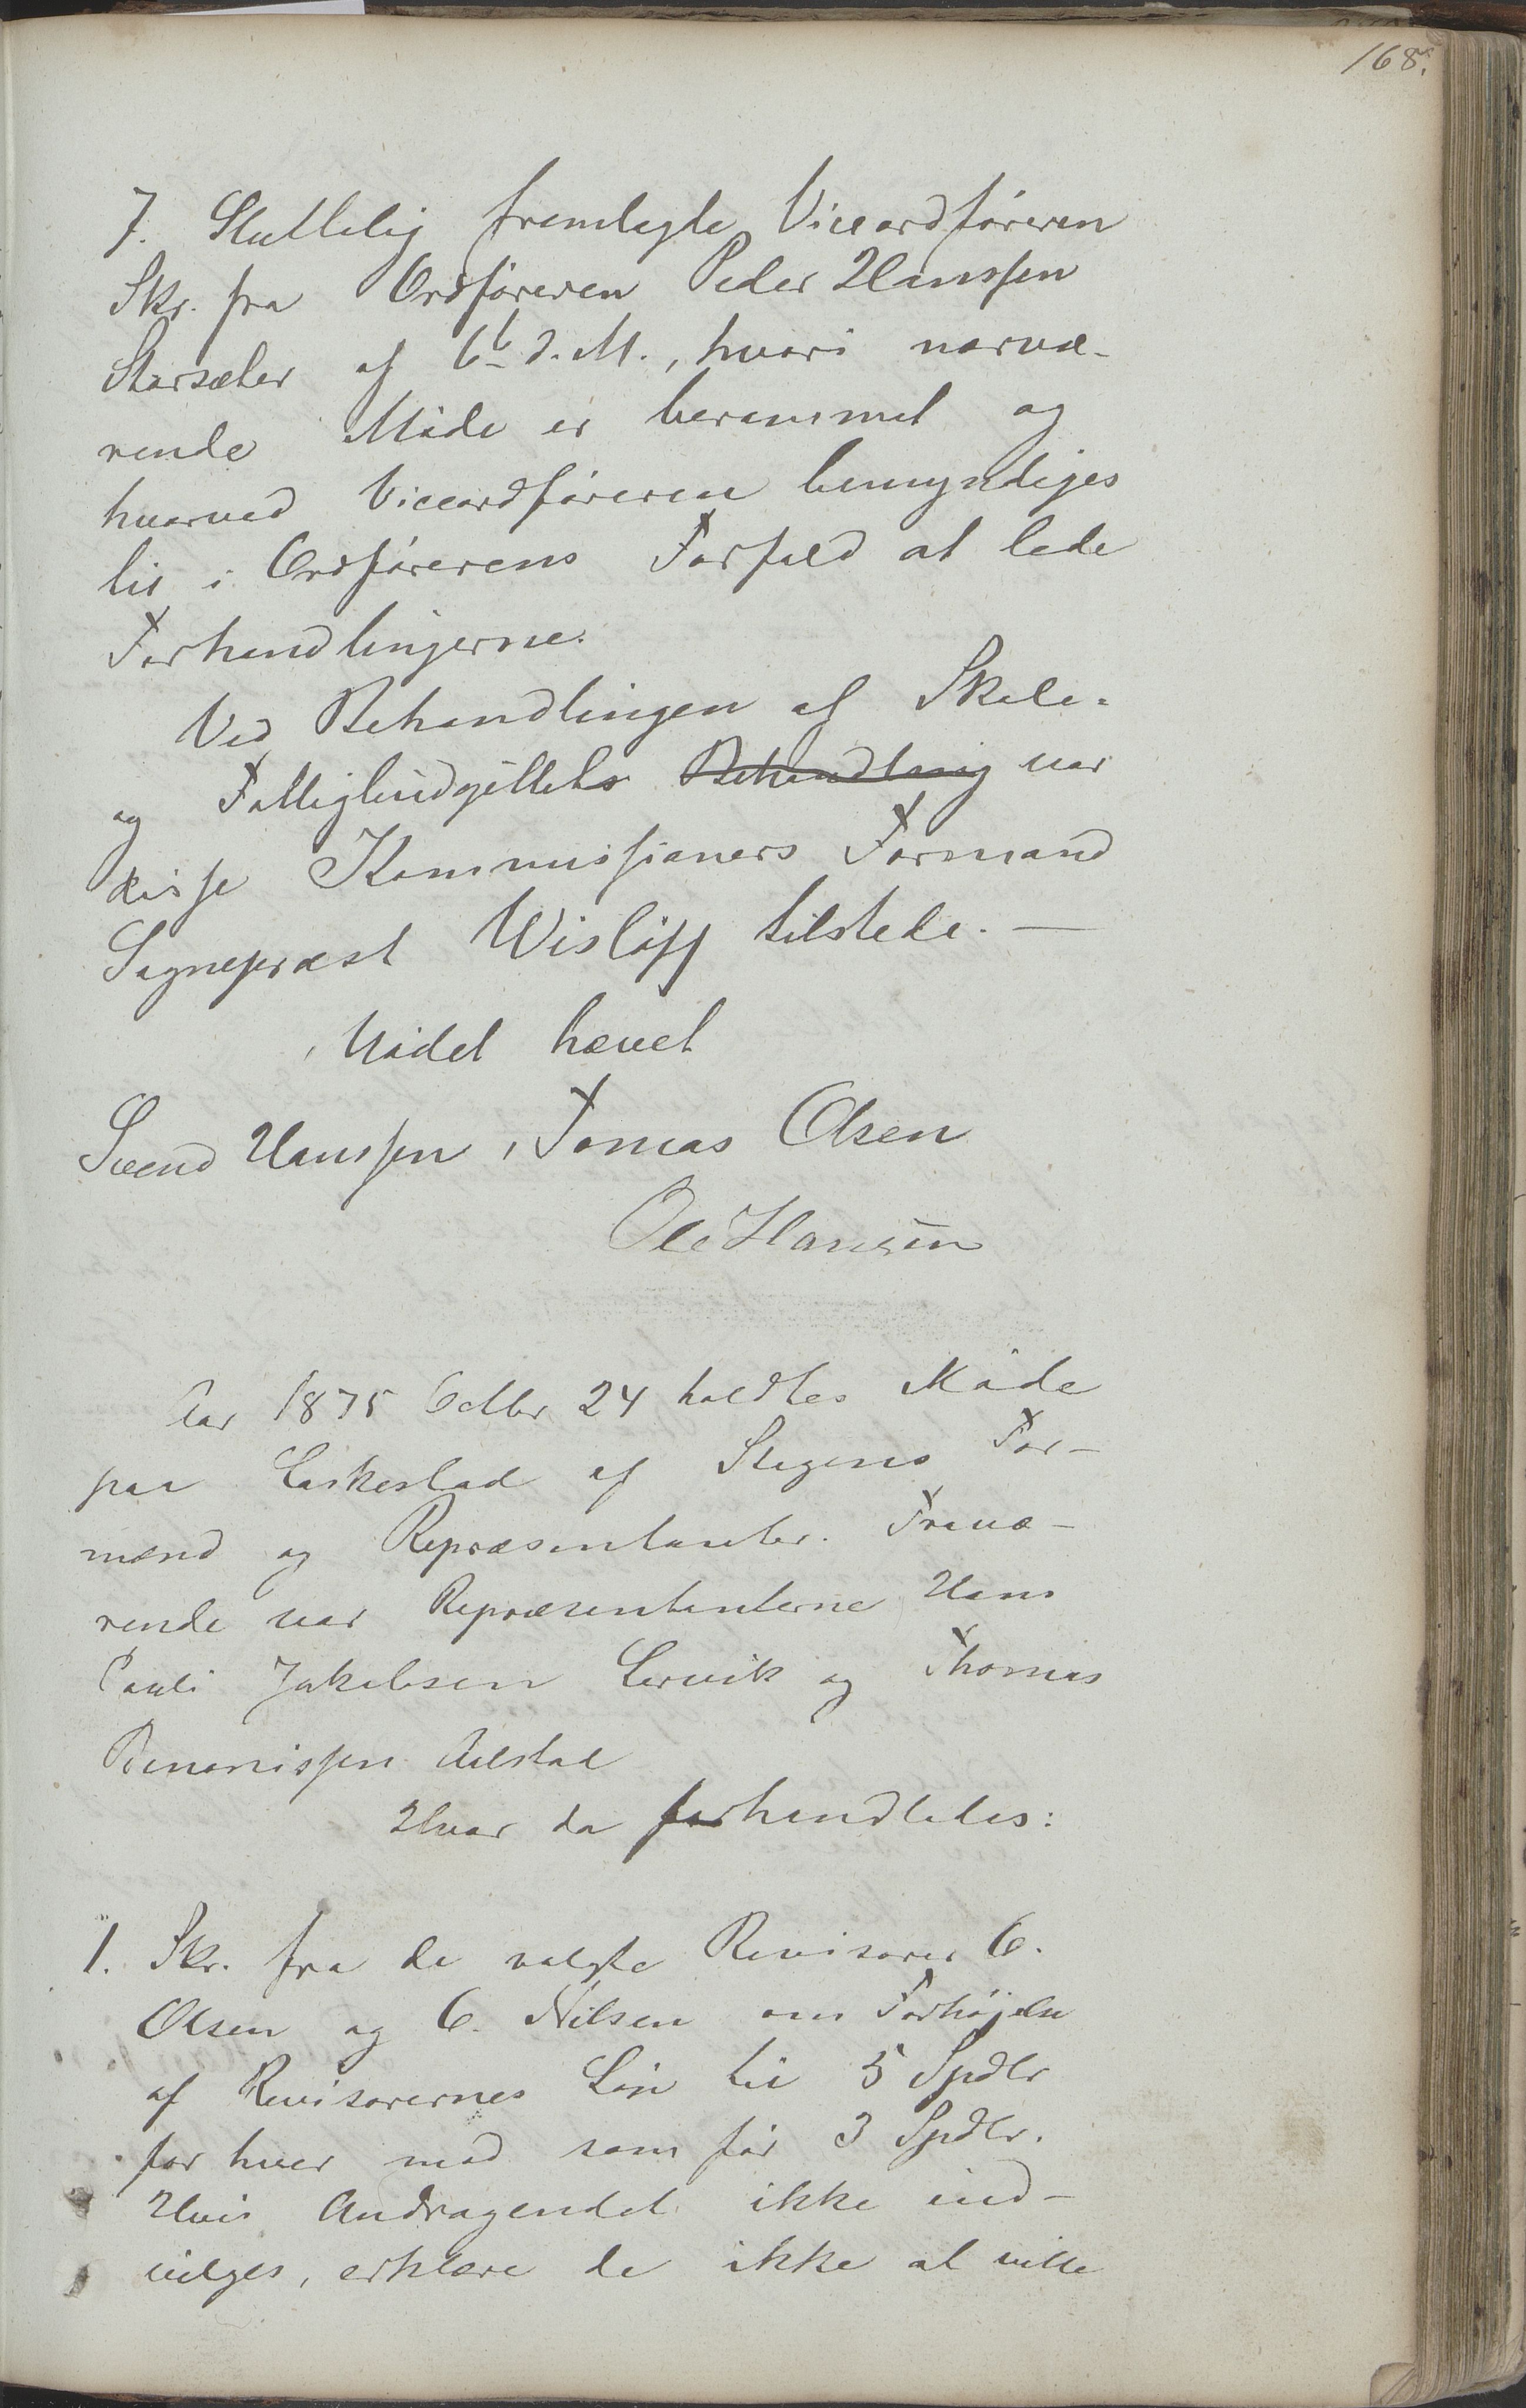 168.
7. Sluttelig fremlagte Viceordføreren
Skr. fra Ordføreren Peder Hanssen
Storsæter af 6t d. M., hvori nærvæ-
rende Møde er berammet og
hvorved Viceordføreren bemyndiges
til i Ordførerens Forfald at lede
Forhandlingerne.
Ved Behandlingen af Skole-
og Fattigbudgettets Behandling var
disse Kommissioners Formand
Sogneprest Wisløff tilstede. —
Mødet hævet
Svend Hanssen, Tomas Olsen
Ole Hansen
Aar 1875 Octbr 24 holdtes Møde
paa Laskestad af Stegens For-
mænd og Repræsentanter. Fravæ-
rende var Repræsentanterne Hans
Pauli Jakobsen Lervik og Thomas
Benonissen Aalstad
Hvor da forhandledes:
1. Skr. fra de valgte Revisorer C.
Olsen og C. Nilsen om Forhøjelse
af Revisorernes Løn til 5 Spdlr
for hver mod som før 3 Spdlr.
Hvis Andragendet ikke ind-
vilges, erklære de ikke at ville